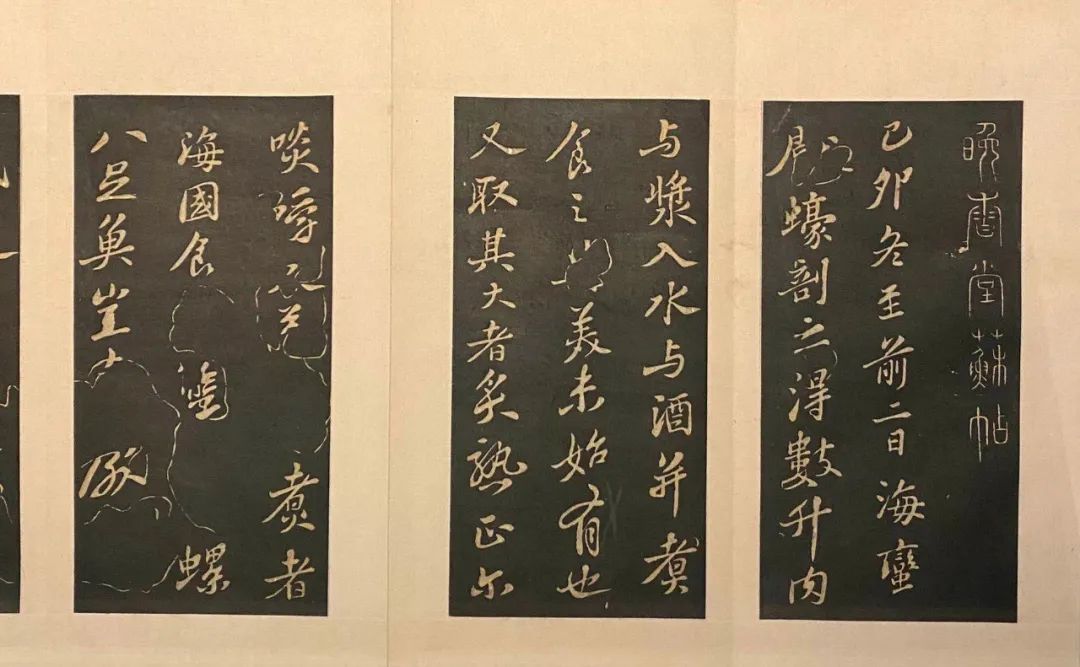 晚香堂蘇帖
己卯冬至前二日海蠻
蠔剖之得數升肉
与漿入水与酒并煑
食之美未始有也
又取其大者炙熟正尔
啖嚼煑者
海國食蟹螺
八足魚豈厭